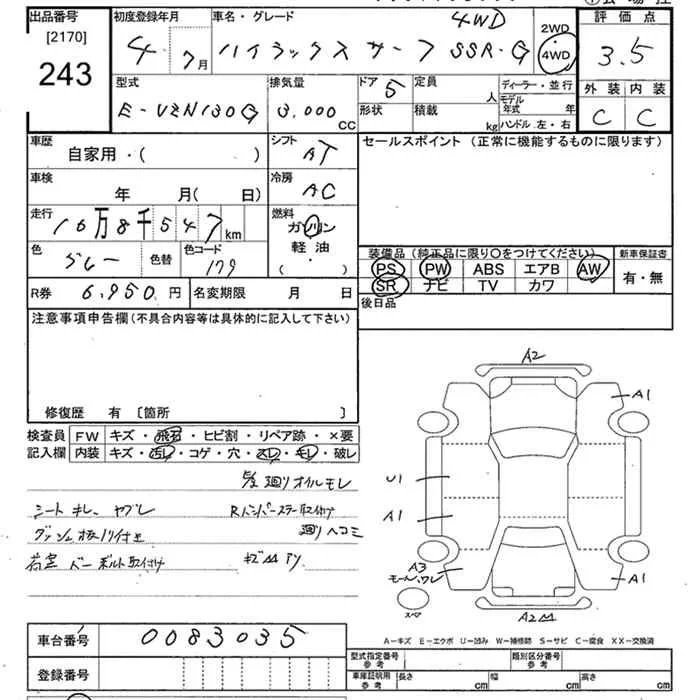 出品番号
[2170]
243
初度登録年月
4年 7月
車名・グレード
4WD
ハイラックス サーフ SSR・G
2WD
4WD
評価点
3.5
外装 内装
C C
型式
E-VZN130G
排気量
3,000 CC
ドア 5
形状
定員 人
積載 kg
ディーラー・並行
モデル年式 年
ハンドル 左・右
車歴
自家用・( )
シフト
AT
セールスポイント (正常に機能するものに限ります)
車検
年 月( 日)
冷房
AC
走行
10万8千547km
燃料
ガソリン
軽油
・( )
色
グレー
色替
色コード
179
装備品 (純正品に限り○をつけてください)
PS PW ABS エアB AW
SR ナビ TV カワ
新車保証書
有・無
R券 6,950円
名変期限 月 日
後日品
注意事項申告欄(不具合内容等は具体的に記入して下さい)
修復歴 有 〔箇所 〕
検査員
記入欄
FW キズ・飛石・ヒビ割・リペア跡・×要
内装 キズ・汚レ・コゲ・穴・スレ・キレ・破レ
廻りオイルモレ
シート キレ ヤブレ
Rバンパーステー取付
廻りヘコミ
ダッシュ
荷室 バー ボルト取付け
A2
A1
U1
A1
A3
モール ワレ
A1
スペア
A2
車台番号 0083035
登録番号
A-キズ E-エクボ U-凹み W-補修跡 S-サビ C-腐食 XX-交換済
型式指定番号
参考
類別区分番号
参考
車庫証明用
参考
長さ cm 幅 cm 高さ cm